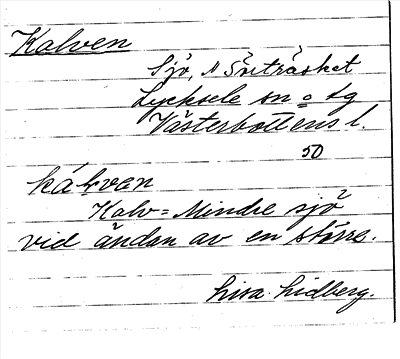 Kalven
Sjö, N Öreträsket
Lycksele sn o lg
Västerbottens l.
50
kálven
Kalv = Mindre sjö
vid ändan av en större.
Lisa Lidberg.